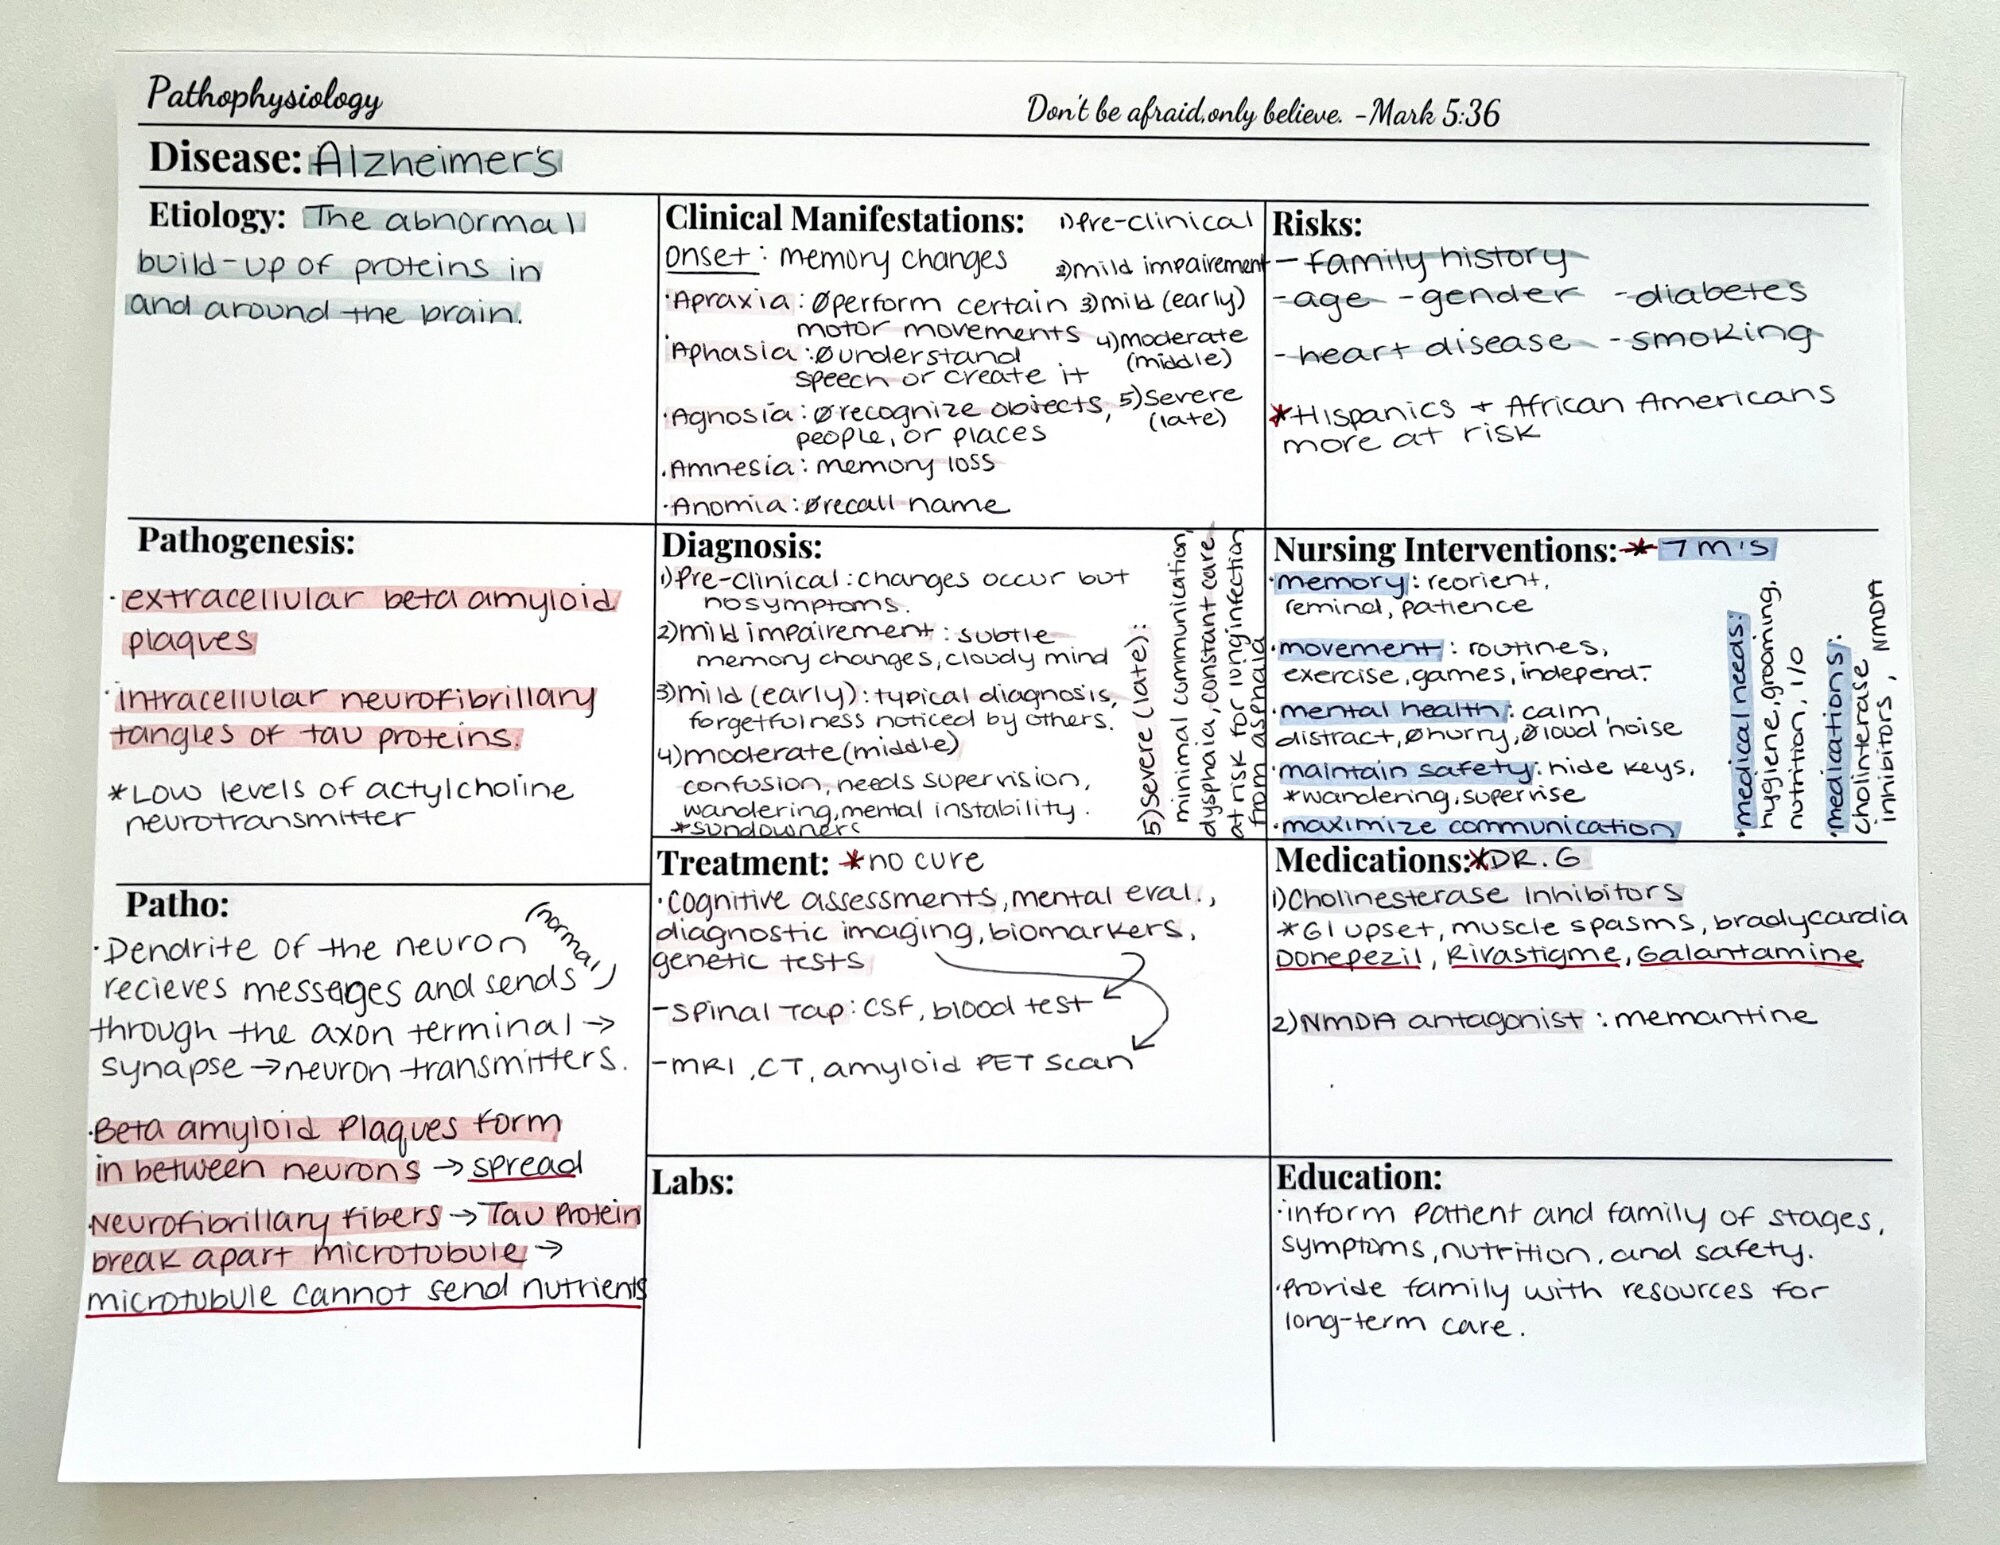 Pathophysiology
Don't be afraid,only believe. -Mark 5:36
Disease: Alzheimer's
Etiology: The abnormal
build-up of proteins in
and around the brain.
Clinical Manifestations:
onset: memory changes
·Apraxia: Øperform certain
motor movements
·Aphasia: Øunderstand
speech or create it
·Agnosia: Ørecognize objects,
people, or places
·Amnesia: memory loss
·Anomia: Ørecall name
1)Pre-clinical
2)mild impairement
3)mild (early)
4)moderate
(middle)
5)severe
(late)
Risks:
- family history
-age -gender -diabetes
-heart disease -smoking
*Hispanics + African Americans
more at risk
Pathogenesis:
·extracellular beta amyloid
plaques
·intracellular neurofibrillary
tangles of tau proteins.
*Low levels of actylcholine
neurotransmitter
Diagnosis:
1)Pre-clinical: changes occur but
no symptoms.
2)mild impairement: subtle
memory changes, cloudy mind
3)mild (early): typical diagnosis,
forgetfulness noticed by others.
4)moderate (middle)
confusion, needs supervision,
wandering, mental instability.
*sundowners
5)severe (late):
minimal communication,
dysphaia, constant care
at risk for lung infection
from asphaia
Nursing Interventions: * 7 M's
·memory: reorient,
remind, patience
·movement: routines,
exercise, games, independ.
·mental health: calm,
distract, Øhurry, Øloud noise
·maintain safety: hide keys,
*wandering, supervise
·maximize communication
·medical needs:
hygiene, grooming,
nutrition, I/O
·medications:
cholinterase
inhibitors, NMDA
Patho:
·Dendrite of the neuron (normal)
recieves messages and sends
through the axon terminal →
synapse → neuron transmitters.
·Beta amyloid Plaques form
in between neurons → spread
·Neurofibrillary fibers → Tau Protein
break apart microtubule →
microtubule cannot send nutrients
Treatment: *no cure
·cognitive assessments, mental eval.,
diagnostic imaging, biomarkers,
genetic tests
-spinal Tap: CSF, blood test
-MRI, CT, amyloid PET scan
Medications:*DR. G
1)Cholinesterase Inhibitors
*GI upset, muscle spasms, bradycardia
Donepezil, Rivastigme, Galantamine
2)NMDA antagonist: memantine
Labs:
Education:
·inform patient and family of stages,
symptoms, nutrition, and safety.
·Provide family with resources for
long-term care.